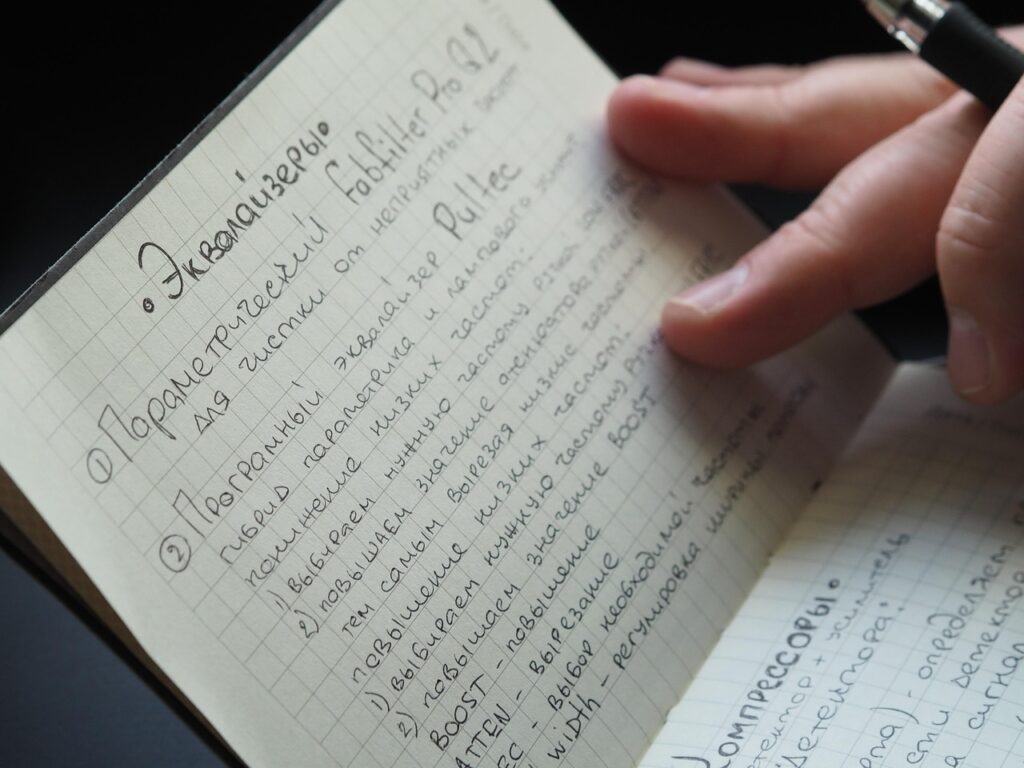 • Эквалайзеры •
① Параметрический Fabfilter Pro Q2
для чистки от неприятных частот
② Програмный эквалайзер Pultec
гибрид параметрика и лампового
понижение низких частот:
1) выбираем нужную частоту
2) повышаем значение атенюатора
тем самым вырезая низкие частоты
повышение низких частот:
1) выбираем нужную частоту
2) повышаем значение BOOST
BOOST - повышение
ATTEN - вырезание
- выбор необходимой частоты
width - регулировка ширины
КОМПРЕССОРЫ •
+ усилитель
Детектора:
- определяет
детектор
сигнал